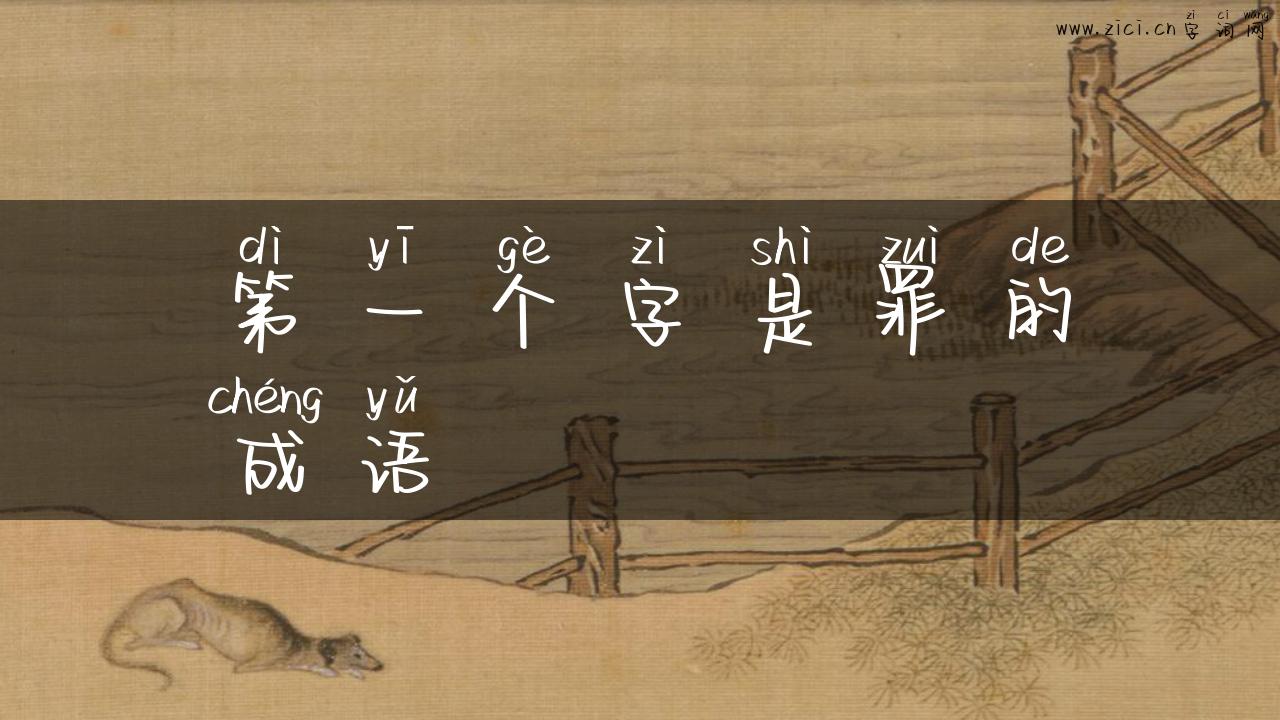 zì cí wǎng
www.zici.cn 字词网
dì yī gè zì shì zuì de
第一个字是罪的
chéng yǔ
成语